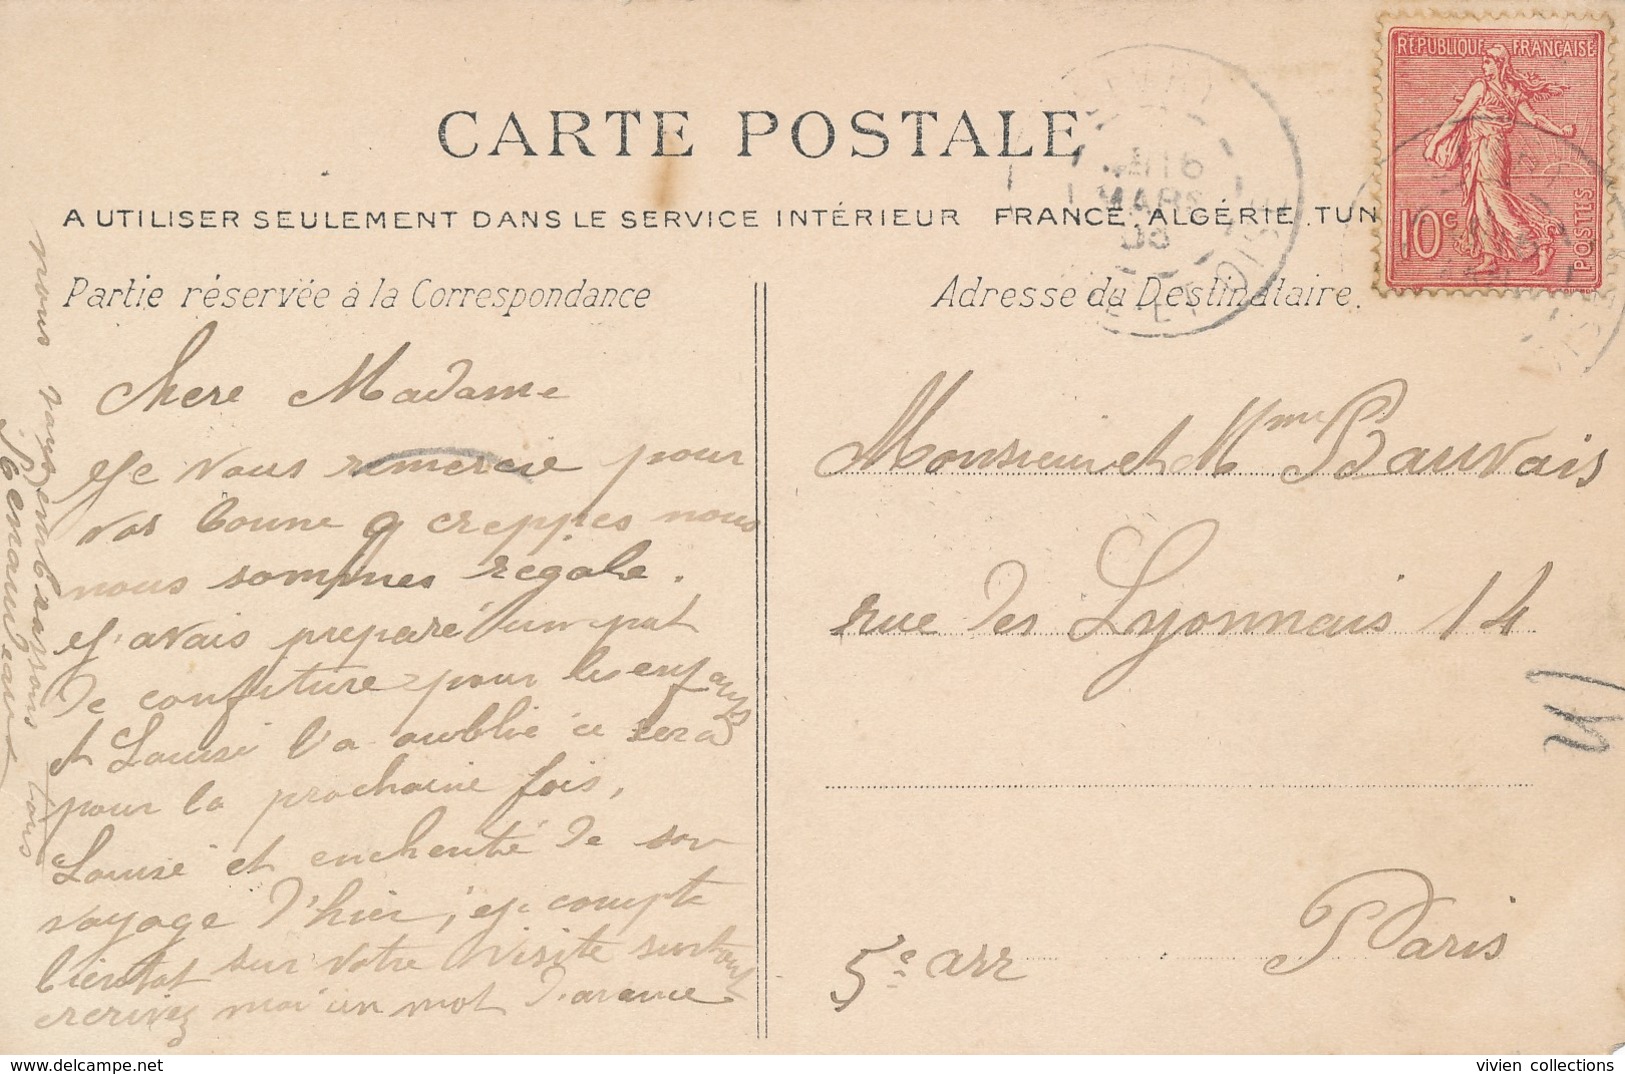 CARTE POSTALE
A UTILISER SEULEMENT DANS LE SERVICE INTÉRIEUR FRANCE, ALGÉRIE, TUN
Partie réservée à la Correspondance
Adresse du Destinataire.
REPUBLIQUE FRANÇAISE
10c
POSTES
MARS
SEINE ET OISE
Chere Madame
Je vous remercie pour
vos bonne creppes nous
nous sommes régale.
J'avais preparé un pot
de confiture pour les enfants
et Louise l'a oublié ce sera
pour la prochaine fois,
Louise et enchenté de son
voyage d'hier, je compte
bientot sur votre visite surtout
ecrivez moi un mot d'avance
nous vous embrassons tous
Monsieur et Mme Bauvais
rue des Lyonnais 14
5e arr Paris
vivien collections